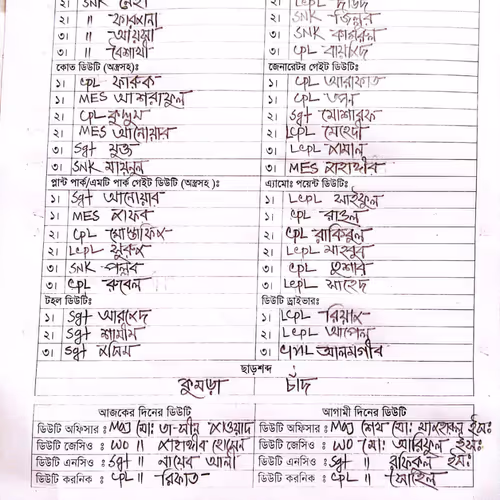 ২। SNK নেহা
২। LCPL দাউদ
২। " ফারজানা
২। SNK জিল্লুর
৩। " আয়শা
৩। SNK কামরুল
৩। " বৈশাখী
৩। CPL বায়েদ
কোত ডিউটি (অস্ত্রসহ)ঃ
জেনারেটর গেইট ডিউটিঃ
১। CPL ফারুক
১। CPL আরাফাত
১। MES আশরাফুল
১। CPL তপন
২। CPL কুদ্দুস
২। Sgt মোশারফ
২। MES আনোয়ার
২। LCPL মেহেদী
৩। Sgt মুক্ত
৩। LCPL কামাল
৩। SNK মাযনুল
৩। MES জাহাঙ্গীর
প্লান্ট পার্ক/এমটি পার্ক গেইট ডিউটি (অস্ত্রসহ )ঃ
এ্যামোঃ পয়েন্ট ডিউটিঃ
১। Sgt আনোয়ার
১। LCPL সাইফুল
১। MES জাফর
১। CPL রাতুল
২। CPL মোস্তাফিজ
২। CPL রাকিবুল
২। LCPL সুরুজ
২। LCPL মাহবুব
৩। SNK পল্লব
৩। CPL তুশার
৩। CPL রুবেল
৩। LCPL সাহেদ
টহল ডিউটিঃ
ডিউটি ড্রাইভারঃ
১। Sgt আরশেদ
১। LCPL রিয়াজ
২। Sgt শামীম
২। LCPL আপেল
৩। Sgt জসিম
৩। CPL আলমগীর
ছাড়শব্দ
কুমড়া চাঁদ
আজকের দিনের ডিউটি
আগামী দিনের ডিউটি
ডিউটি অফিসার ঃ Maj মোঃ তা-সীন জাওয়াদ
ডিউটি অফিসার ঃ Maj শেখ মোঃ ইসঃ
ডিউটি জেসিও ঃ WO " জাহাঙ্গীর হোসেন
ডিউটি জেসিও ঃ WO মোঃ আরিফুল ইসঃ
ডিউটি এনসিও ঃ Sgt " সায়েব আলী
ডিউটি এনসিও ঃ Sgt " রফিকুল ইসঃ
ডিউটি করনিক ঃ CPL " রিফাত
ডিউটি করনিক ঃ CPL " সোহেল